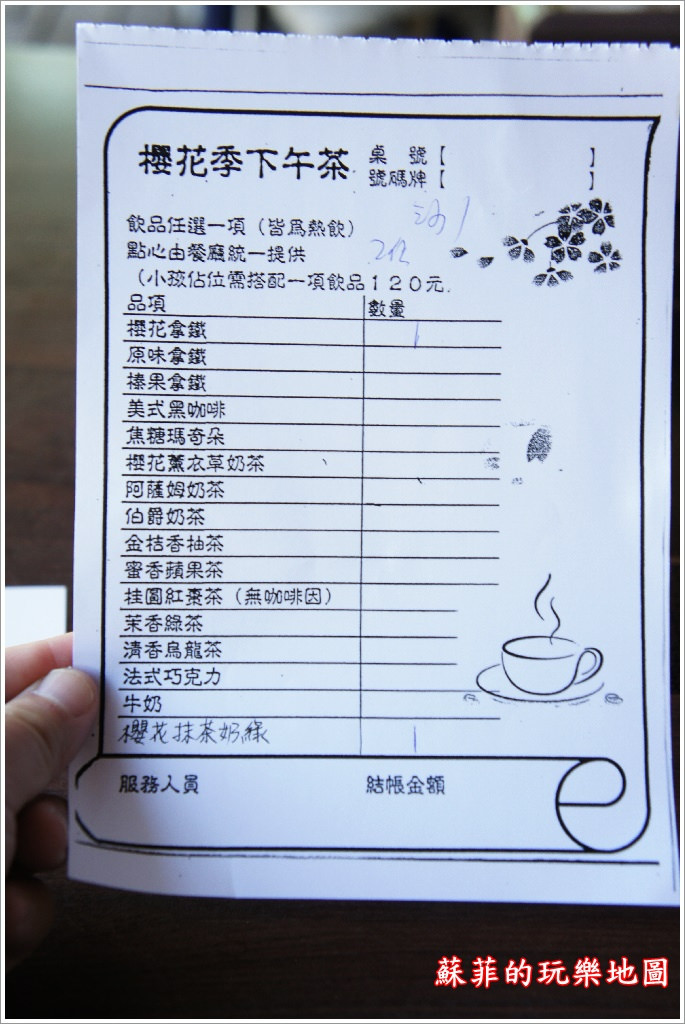 櫻花季下午茶 桌 號【 】
號碼牌【 】
飲品任選一項（皆為熱飲）
點心由餐廳統一提供 2位
（小孩佔位需搭配一項飲品１２０元.
品項 數量
櫻花拿鐵 1
原味拿鐵
榛果拿鐵
美式黑咖啡
焦糖瑪奇朵
櫻花薰衣草奶茶
阿薩姆奶茶
伯爵奶茶
金桔香柚茶
蜜香蘋果茶
桂圓紅棗茶（無咖啡因）
茉香綠茶
清香烏龍茶
法式巧克力
牛奶
櫻花抹茶奶綠 1
服務人員 結帳金額
蘇菲的玩樂地圖